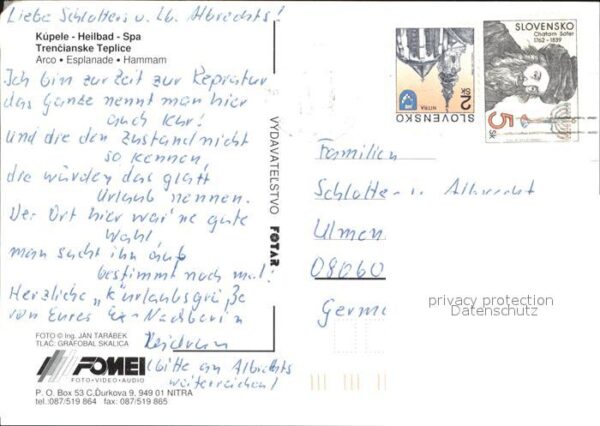 Liebe Schlotters u. Lb. Albrechts!
Kúpele - Heilbad - Spa
Trenčianske Teplice
Arco • Esplanade • Hammam
Ich bin zur Zeit zur Repratur
das Ganze nennt man hier
auch Kur!
Und die den Zustand nicht
so kennen,
die würden das glatt
Urlaub nennen.
Der Ort hier war 'ne gute
Wahl
man sucht ihn auf
bestimmt noch mal!
Herzliche „Kurlaubsgrüße
von Eurer Ex-Nachbarin
Heidrun
(bitte an Albrechts
weiterreichen!
FOTO © Ing. JÁN TARÁBEK
TLAČ: GRAFOBAL SKALICA
FOMEI
FOTO•VIDEO•AUDIO
P. O. Box 53 Č.Ďurkova 9, 949 01 NITRA
tel.:087/519 864 fax: 087/519 865
VYDAVATEĽSTVO FOTAR
SLOVENSKO
2 SK
NITRA
SLOVENSKO
Chatam Sófer
1762 - 1839
5 SK
Familien
Schlotter u. Albrecht
Ulmen
08060
Germa
privacy protection
Datenschutz